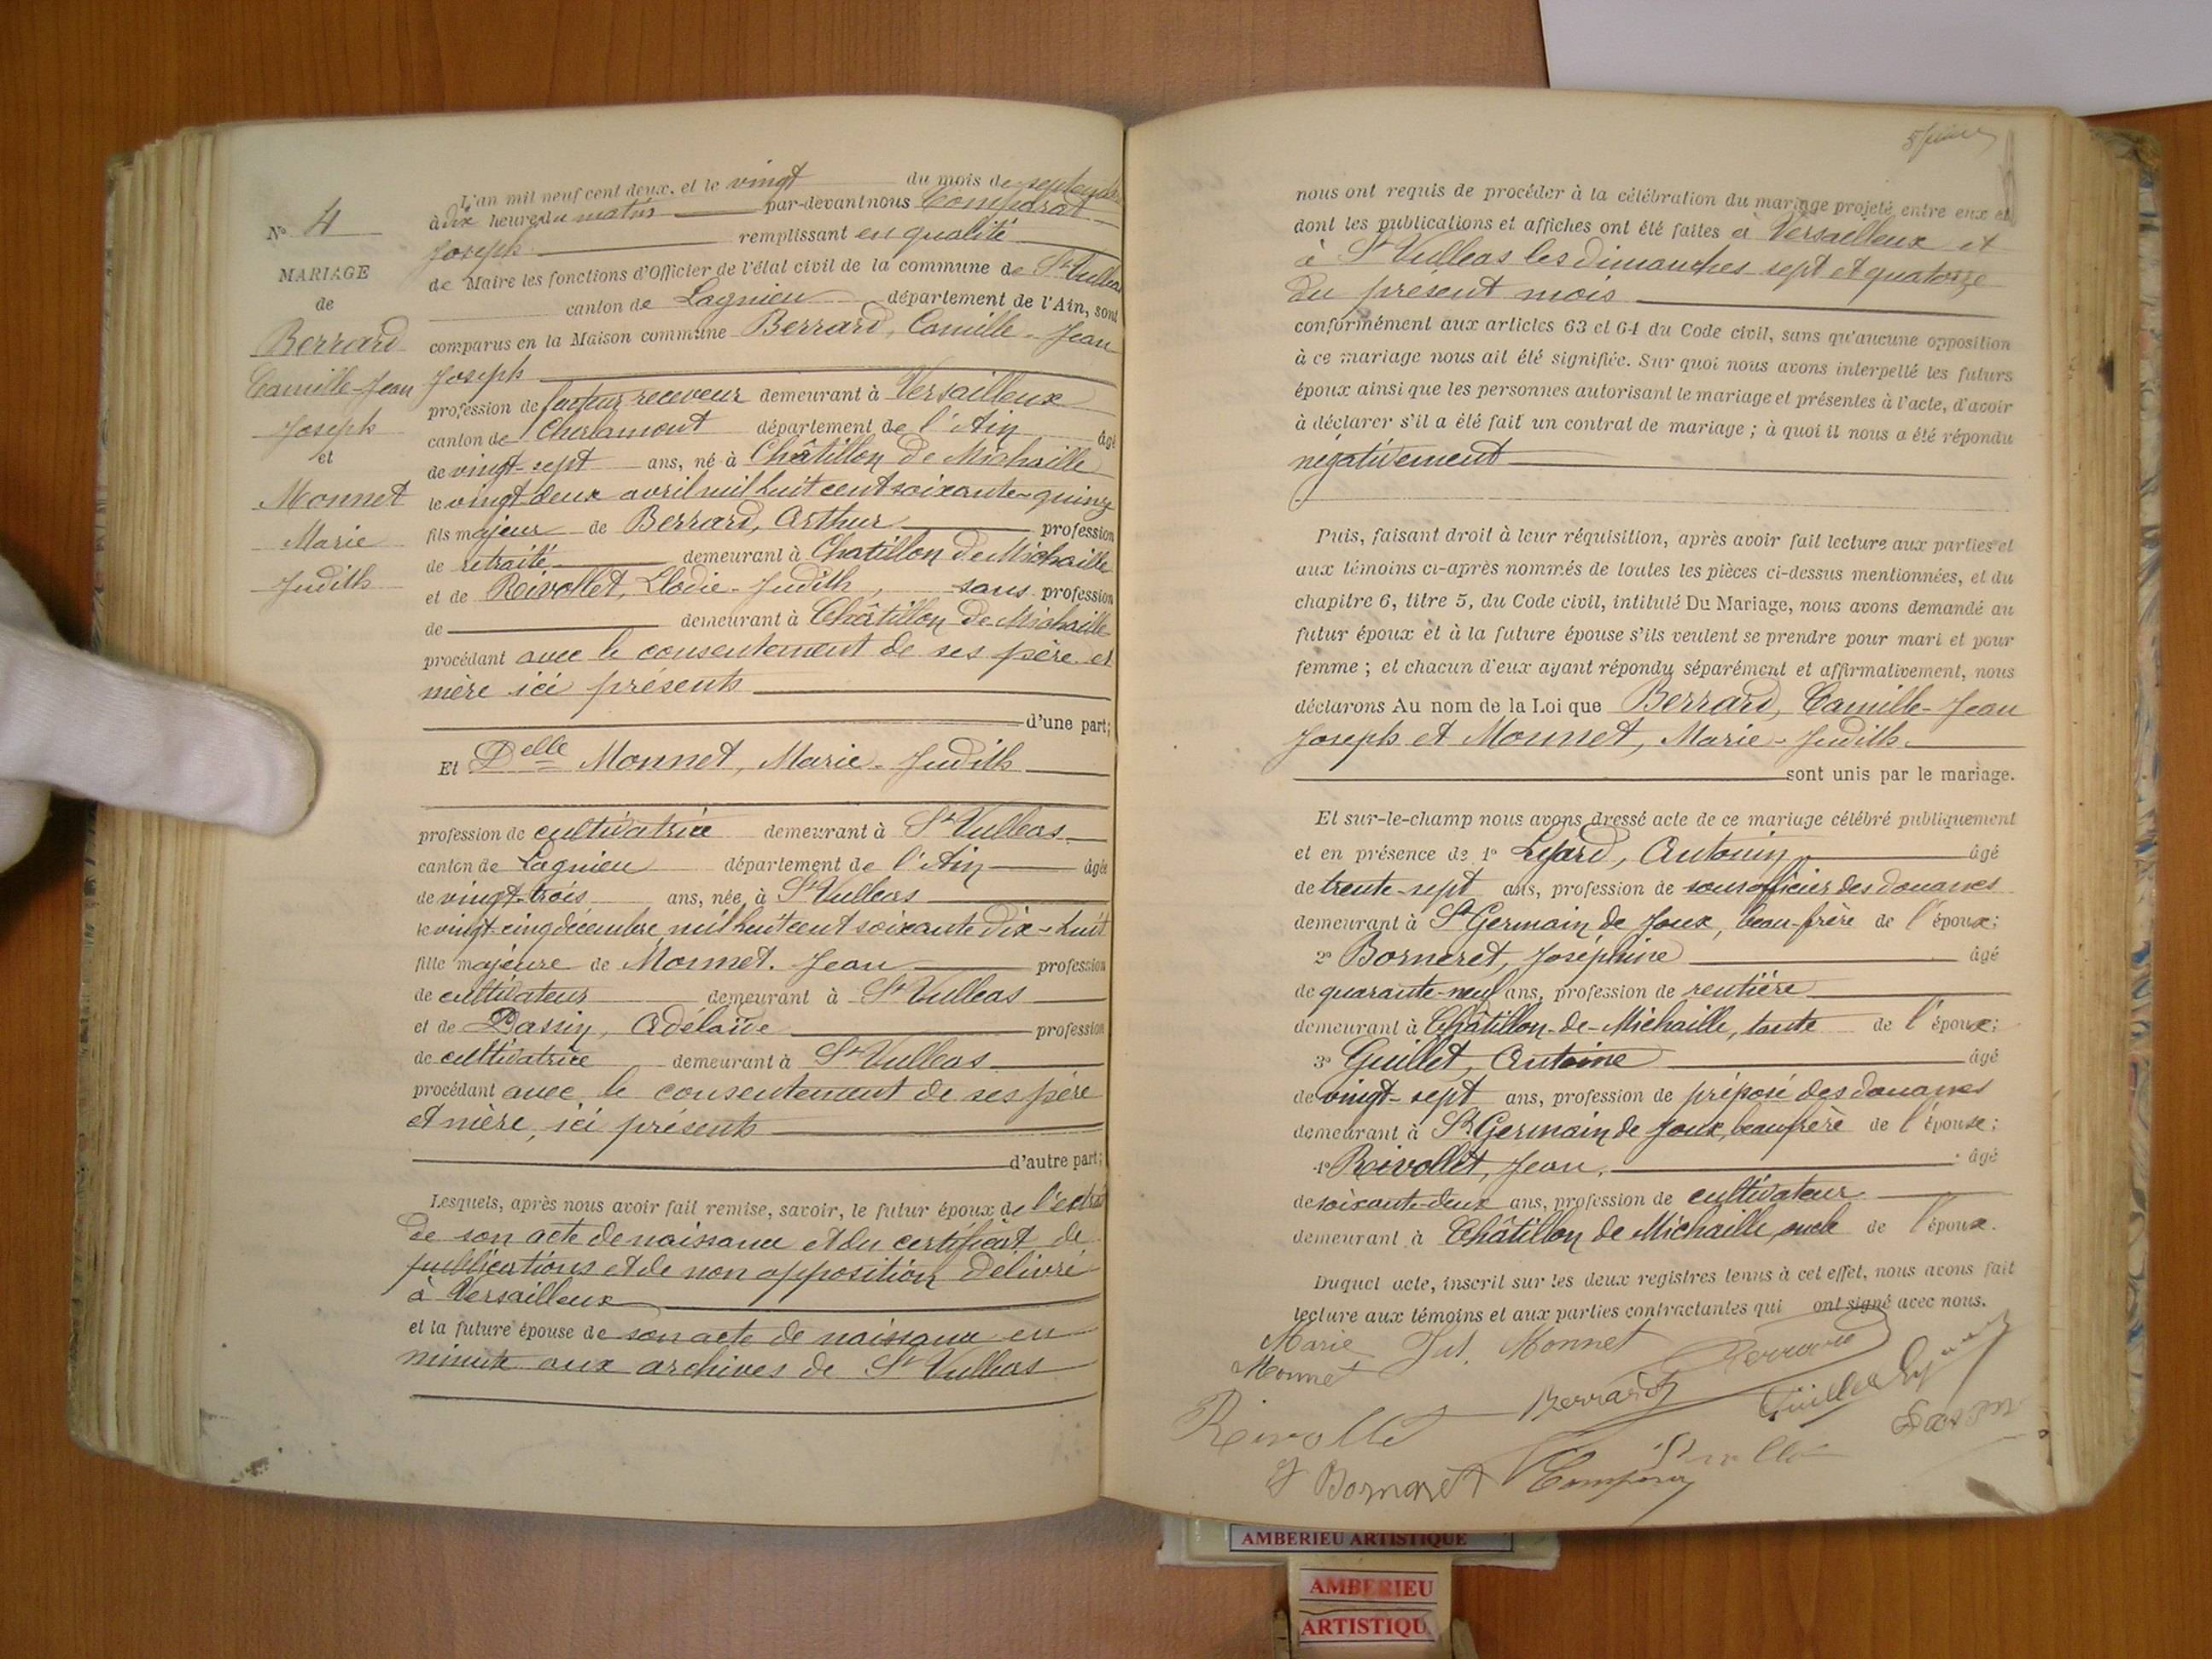 N° 4
MARIAGE
de
Berrard
Camille-Jean
Joseph
et
Monnet
Marie
Judith
L'an mil neuf cent deux, et le vingt du mois de septembre
à dix heures du matin par-devant nous Comparat
Joseph remplissant en qualité
de Maire les fonctions d'Officier de l'état civil de la commune de St Vulbas
canton de Lagnieu département de l'Ain, sont
comparus en la Maison commune Berrard, Camille-Jean
Joseph
profession de facteur receveur demeurant à Versailleux
canton de Chalamont département de l'Ain âgé
de vingt-sept ans, né à Châtillon de Michaille
le vingt-deux avril mil huit cent soixante-quinze
fils majeur de Berrard, Arthur profession
de retraité demeurant à Chatillon de Michaille
et de Reivollet, Elodie-Judith, sans profession
de demeurant à Châtillon de Michaille
procédant avec le consentement de ses père et
mère ici présents
d'une part;
Et Delle Monnet, Marie-Judith
profession de cultivatrice demeurant à St Vulbas
canton de Lagnieu département de l'Ain âgée
de vingt-trois ans, née à St Vulbas
le vingt-cinq décembre mil huit cent soixante dix-huit
fille majeure de Monnet, Jean profession
de cultivateur demeurant à St Vulbas
et de Dassin, Adélaïde profession
de cultivatrice demeurant à St Vulbas
procédant avec le consentement de ses père
et mère, ici présents
d'autre part;
Lesquels, après nous avoir fait remise, savoir, le futur époux de l'extrait
de son acte de naissance et du certificat de
publications et de non opposition délivré
à Versailleux
et la future épouse de son acte de naissance en
minute aux archives de St Vulbas
nous ont requis de procéder à la célébration du mariage projeté entre eux et
dont les publications et affiches ont été faites à Versailleux et
à St Vulbas les dimanches sept et quatorze
du présent mois
conformément aux articles 63 et 64 du Code civil, sans qu'aucune opposition
à ce mariage nous ait été signifiée. Sur quoi nous avons interpellé les futurs
époux ainsi que les personnes autorisant le mariage et présentes à l'acte, d'avoir
à déclarer s'il a été fait un contrat de mariage ; à quoi il nous a été répondu
négativement
Puis, faisant droit à leur réquisition, après avoir fait lecture aux parties et
aux témoins ci-après nommés de toutes les pièces ci-dessus mentionnées, et du
chapitre 6, titre 5, du Code civil, intitulé Du Mariage, nous avons demandé au
futur époux et à la future épouse s'ils veulent se prendre pour mari et pour
femme ; et chacun d'eux ayant répondu séparément et affirmativement, nous
déclarons Au nom de la Loi que Berrard, Camille-Jean
Joseph et Monnet, Marie-Judith
sont unis par le mariage.
Et sur-le-champ nous avons dressé acte de ce mariage célébré publiquement
et en présence de 1° Antonin âgé
de trente-sept ans, profession de sous officier des douanes
demeurant à St Germain de Joux, beau-frère de l'époux;
2° Borneret, Joséphine âgé
de quarante-neuf ans, profession de rentière
demeurant à Châtillon-de-Michaille, tante de l'époux;
3° Guillet, Antoine âgé
de vingt-sept ans, profession de préposé des douanes
demeurant à St Germain de Joux, beau frère de l'épouse;
4° Reivollet, Jean, âgé
de soixante-deux ans, profession de cultivateur
demeurant à Châtillon de Michaille, oncle de l'époux.
Duquel acte, inscrit sur les deux registres tenus à cet effet, nous avons fait
lecture aux témoins et aux parties contractantes qui ont signé avec nous.
Marie Jud. Monnet
Monnet
Berrard
Guillet
J Bornaret
AMBERIEU ARTISTIQUE
AMBERIEU
ARTISTIQU